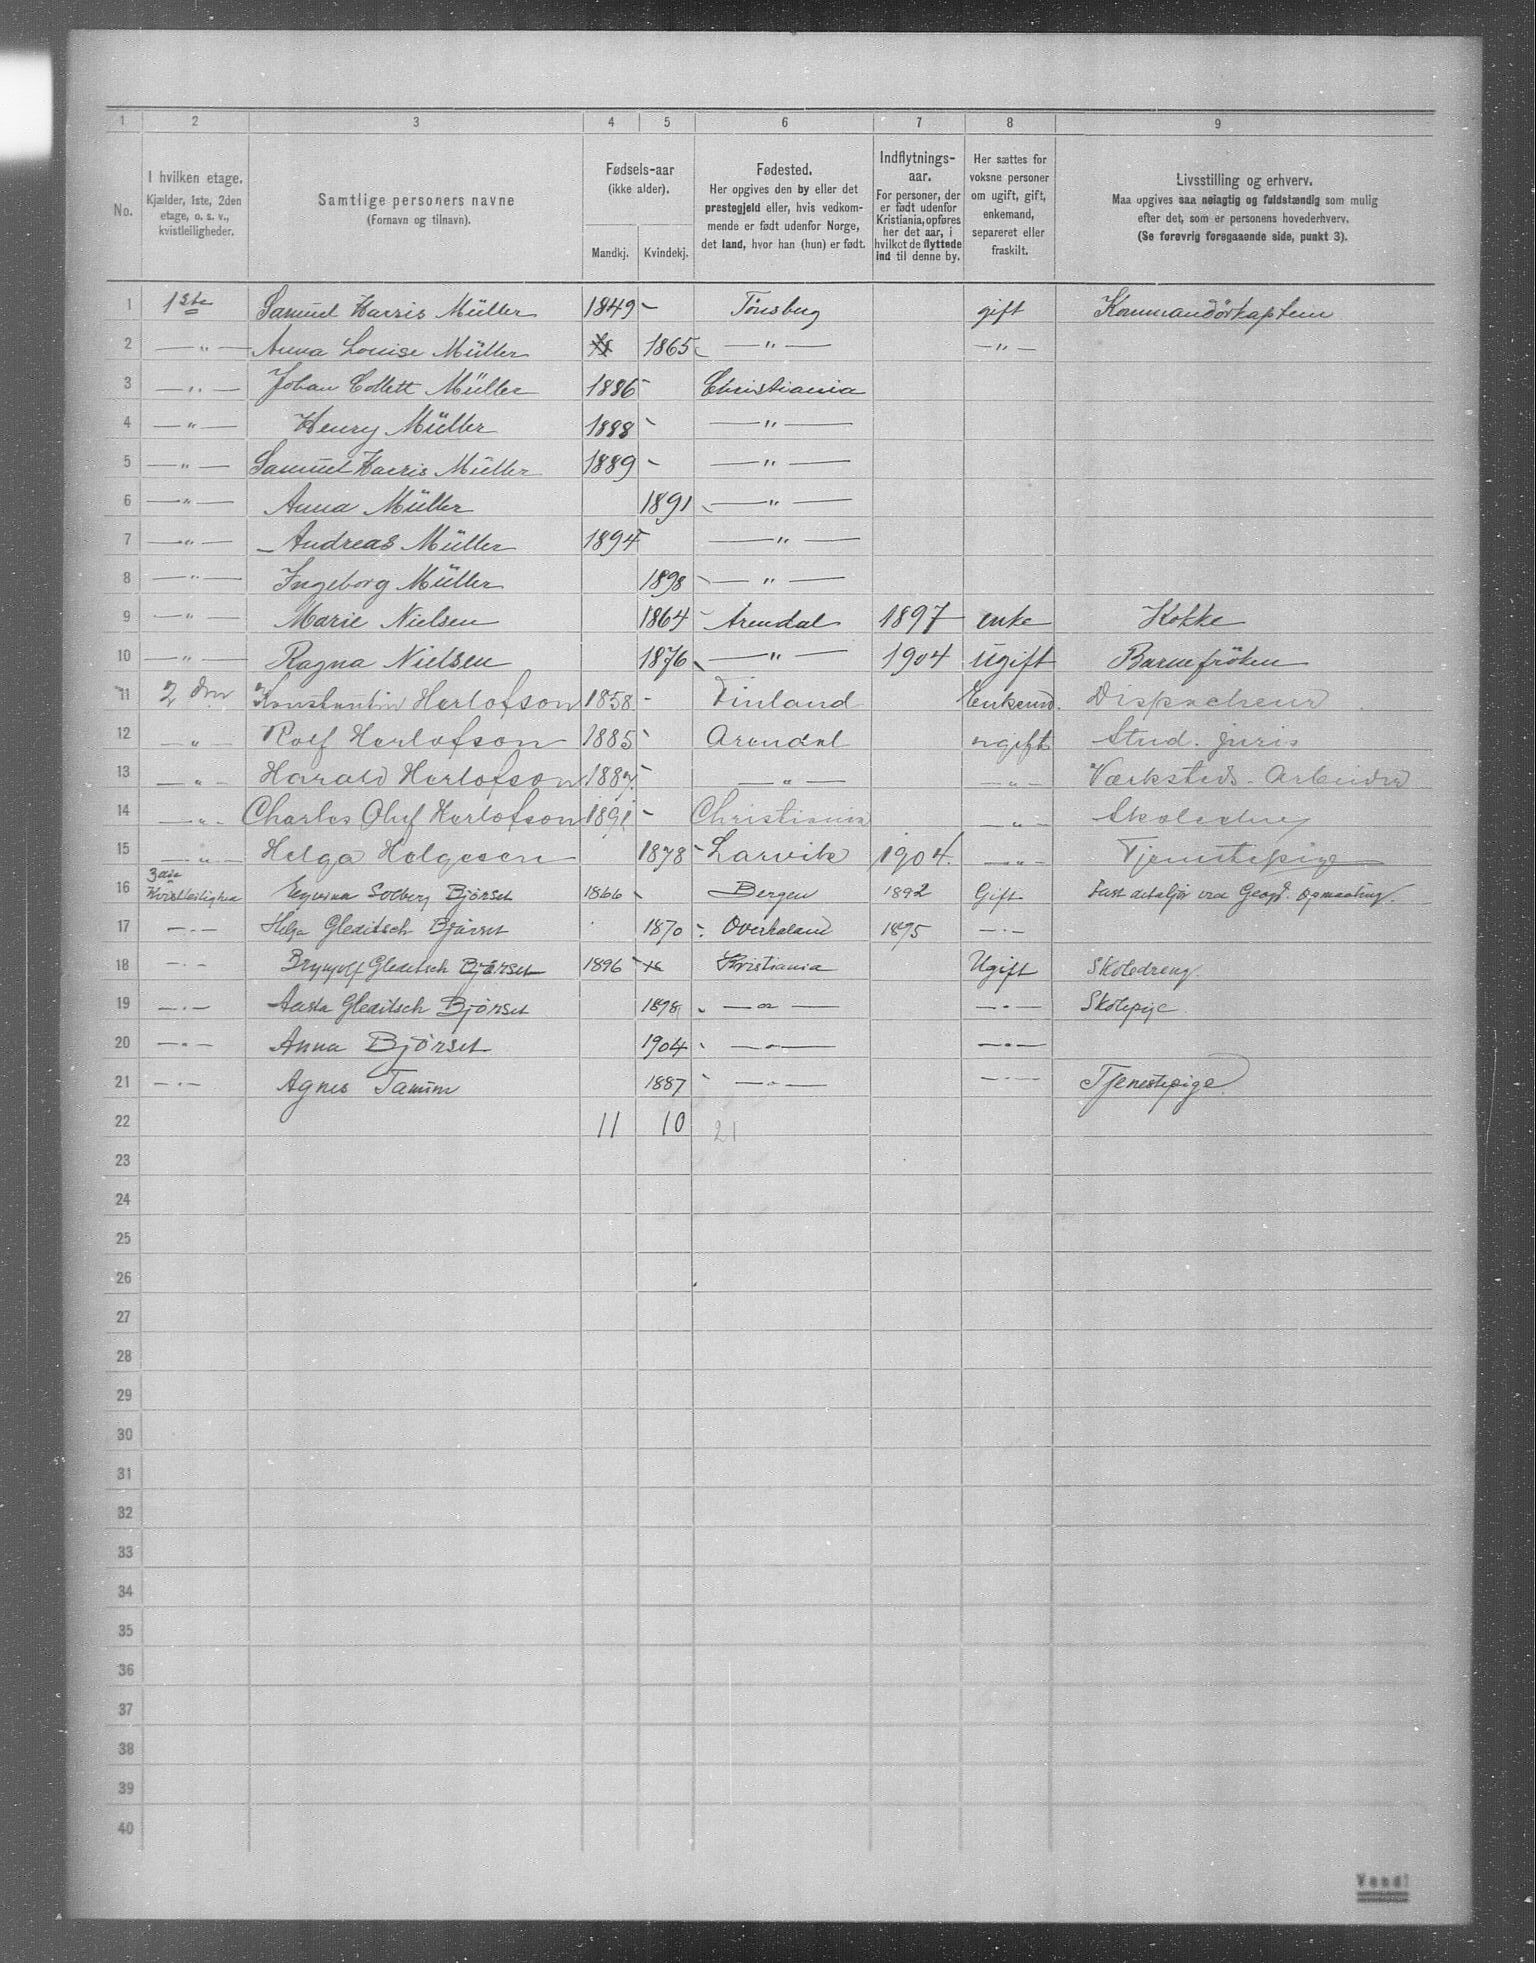 1 2 3 4 5 6 7 8 9
No. I hvilken etage. Kjælder, 1ste, 2den etage, o. s. v., kvistleiligheder. Samtlige personers navne (Fornavn og tilnavn). Fødsels-aar (ikke alder). Mandkj. Kvindekj. Fødested. Her opgives den by eller det prestegjeld eller, hvis vedkommende er født udenfor Norge, det land, hvor han (hun) er født. Indflytnings-aar. For personer, der er født udenfor Kristiania, opføres her det aar, i hvilket de flyttede ind til denne by. Her sættes for voksne personer om ugift, gift, enkemand, separeret eller fraskilt. Livsstilling og erhverv. Maa opgives saa nøiagtig og fuldstændig som mulig efter det, som er personens hovederhverv. (Se forøvrig foregaaende side, punkt 3).
1 1ste Samuel Harris Müller 1849 - Tønsberg gift Kommandørkaptein
2 — " — Anna Louise Müller 1865 — " — — " —
3 — " — Johan Collett Müller 1886 - Christiania
4 — " — Henry Müller 1888 - — " —
5 — " — Samuel Harris Müller 1889 - — " —
6 — " — Anna Müller 1891 — " —
7 — " — Andreas Müller 1894 — " —
8 — " — Ingeborg Müller 1898 — " —
9 — " — Marie Nielsen 1864 - Arendal 1897 enke Kokke
10 — " — Ragna Nielsen 1876 — " — 1904 ugift Barnefrøken
11 2 den Konstantin Herlofson 1858 - Finland Enkem. Dispacheur
12 — " — Rolf Herlofson 1885 - Arendal ugift Stud. juris
13 — " — Harald Herlofson 1887 - — " — — " — Værksteds-Arbeider
14 — " — Charles Oluf Herlofson 1891 - Christiania — " — Skoledreng
15 — " — Helga Helgesen 1878 - Larvik 1904. — " — Tjenestepige
16 3die Kvistleilighed Solberg Bjørset 1866 Bergen 1892 Gift Fast detaljør ved Geogr. Opmaaling.
17 — " — Helga Gleditsch Bjørset 1870 - Overhalden 1895 — " —
18 — " — Brynjulf Gleditsch Bjørset 1896 Kristiania Ugift Skoledreng.
19 — " — Aasta Gleditsch Bjørset 1898 — " — — " — Skolepige
20 — " — Anna Bjørset 1904 — " — — " —
21 — " — Agnes Tamm 1887 — " — — " — Tjenestepige.
22 11 10 21
23
24
25
26
27
28
29
30
31
32
33
34
35
36
37
38
39
40
Vend!